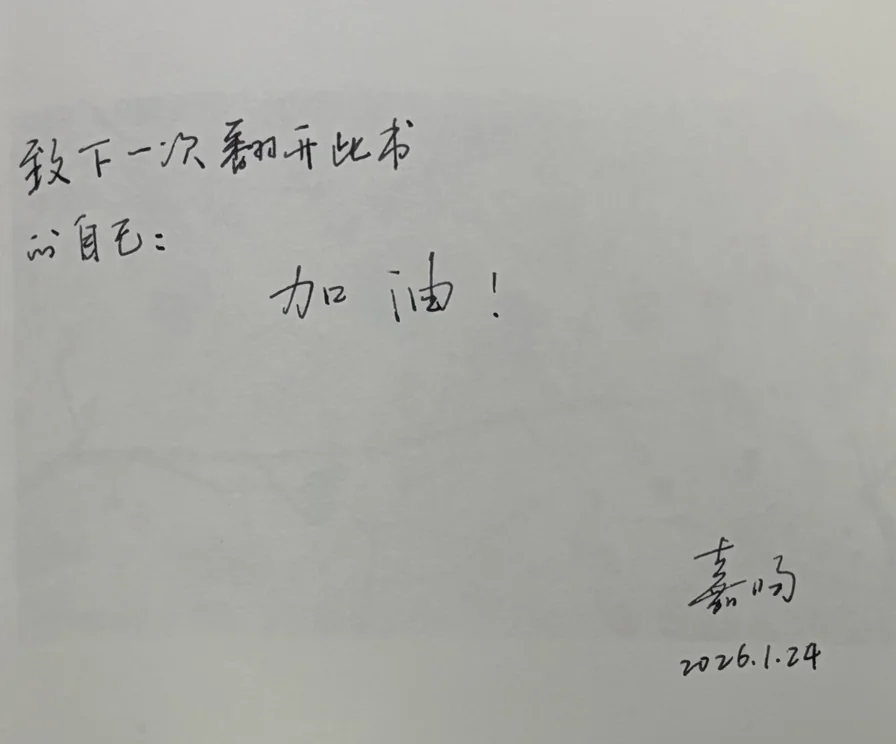 致下一次翻开此书
的自己：
加油！
嘉旸
2026.1.24